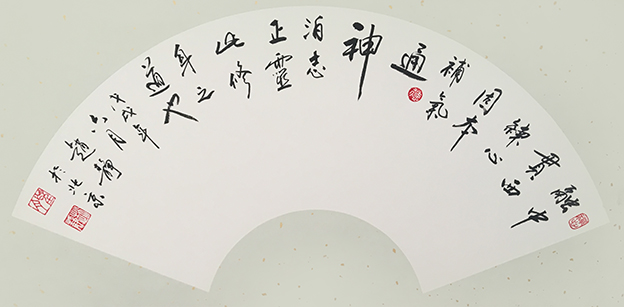 融中
貫西
練心
固本
補氣
通
神
泊志
正靈
此修
身之
道也
戊戌年
六月
趙靜
於北京